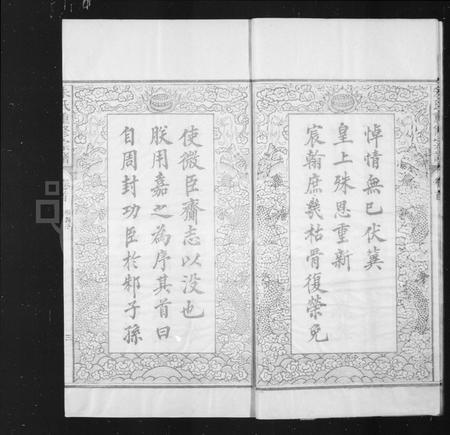 悼情無已伏冀
皇上殊恩重新
宸翰庶幾枯骨復榮免
使微臣齎志以没也
朕用嘉之為序其首曰
自周封功臣於邾子孫